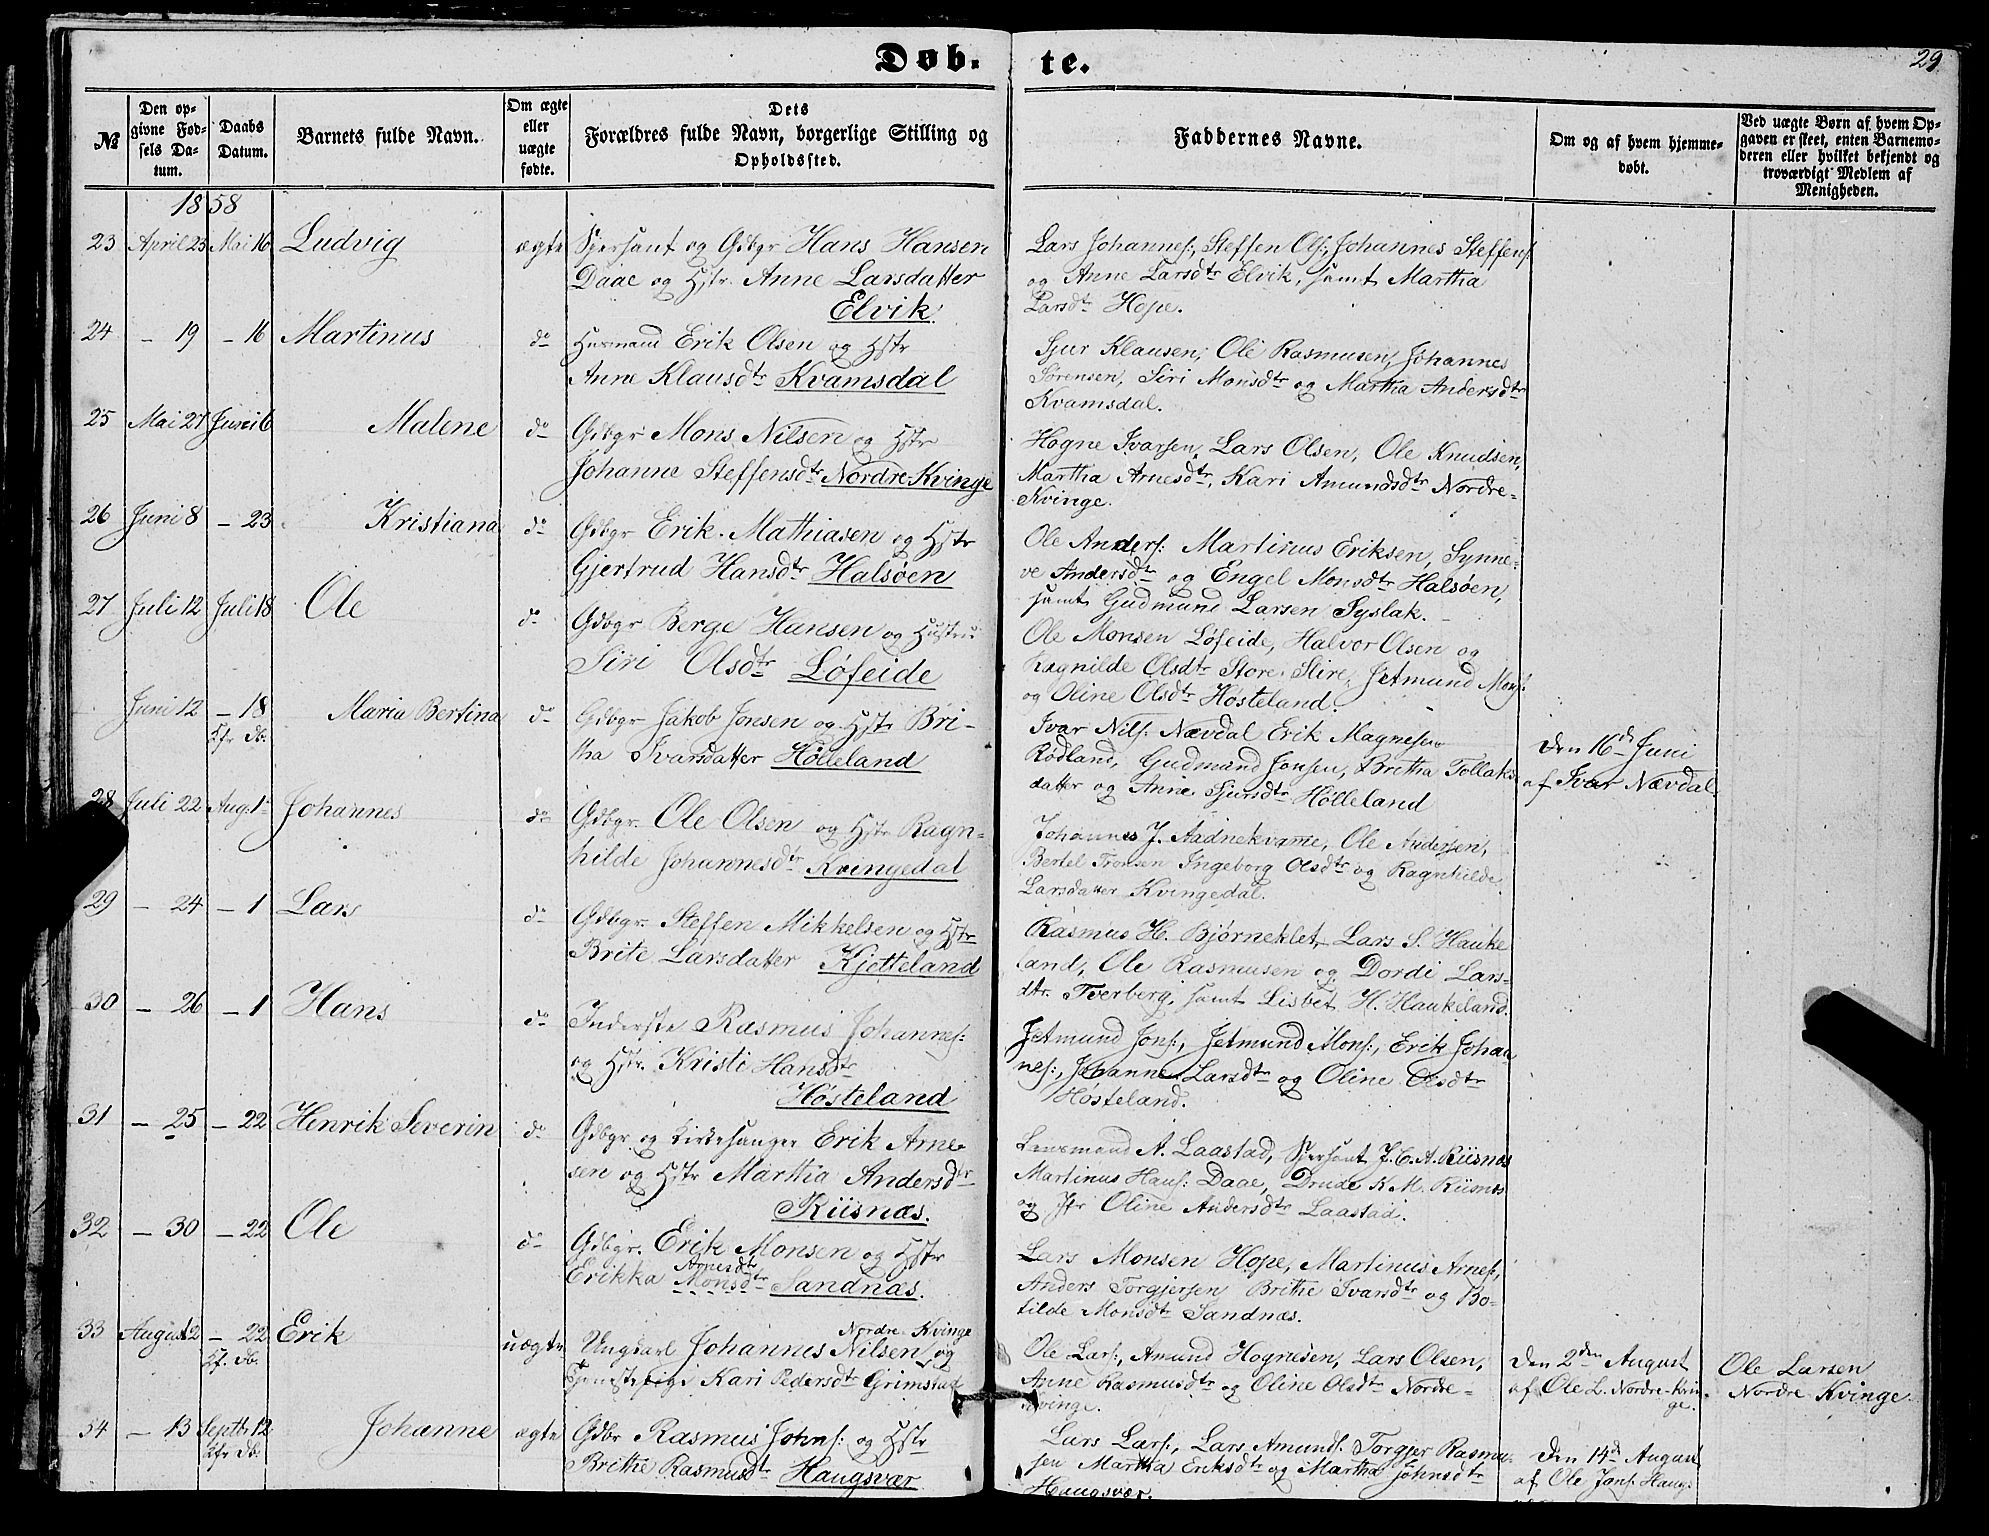 Døb-
te.
29
№
Den op-
givne Fød-
sels Da-
tum.
Daabs
Datum.
Barnets fulde Navn.
Om ægte
eller
uægte
fødte.
Dets
Forældres fulde Navn, borgerlige Stilling og
Opholdssted.
Faddernes Navne.
Om og af hvem hjemme-
døbt.
Ved uægte Børn af hvem Op-
gaven er skeet, enten Barnemo-
deren eller hvilket bekjendt og
troværdigt Medlem af
Menigheden.
1858
23 April 25 Mai 16 Ludvig ægte Sjersant og Gdbgr Hans Hansen
Daae og Hstr. Anne Larsdatter
Elvik.
Lars Johannes:, Steffen Ols:, Johannes Steffens:
og Anne Larsdtr Elvik, samt Martha
Larsdtr Hope.
24 – 19 – 16 Martinus do Husmand Erik Olsen og Hstr
Anne Klausdtr Kvamsdal
Sjur Klausen, Ole Rasmusen, Johannes
Sørensen, Siri Monsdtr og Martha Andersdtr
Kvamsdal.
25 Mai 27 Juni 6 Malene do Gdbgr Mons Nilsen og Hstr
Johanne Steffensdtr Nordre Kvinge
Hogne Ivarsen, Lars Olsen, Ole Knudsen,
Martha Arnesdtr, Kari Amundsdtr Nordre-
Kvinge.
26 Juni 8 – 23 Kristiana do Gdbgr Erik Mathiasen og Hstr
Gjertrud Hansdtr Halsøen
Ole Anders: Martinus Eriksen, Synne-
ve Andersdtr og Engel Monsdtr Halsøen,
samt Gudmund Larsen Syslak.
27 Juli 12 Juli 18 Ole do Gdbgr Berge Hansen og Hustru
Siri Olsdtr Løfeide
Ole Monsen Løfeide, Halvor Olsen og
Ragnilde Olsdtr Store Slire, Jetmund Mons:
og Oline Olsdtr Høsteland.
Juni 12 – 18 Maria Bertina do Gdbgr Jakob Jonsen og Hstr Bri-
Kfr Db.
tha Ivarsdatter Hølleland
Ivar Nils: Nævdal Erik Magnesen
Rødland, Gudmund Jonsen, Britha Tollaks
datter og Anne Sjursdtr Hølleland
Den 16de Juni
af Ivar Nævdal.
28 Juli 22 Aug. 1 Johannes do Gdbgr. Ole Olsen og Hstr Ragn-
hilde Johannesdtr Kvingedal
Johannes J. Aadnekvame, Ole Andersen,
Bertel Tronsen Ingeborg Olsdtr og Ragnhilde
Larsdatter Kvingedal.
29 – 24 – 1 Lars do Gdbgr. Steffen Mikkelsen og Hstr
Brite Larsdatter Kjetteland
Rasmus H. Bjørneklet, Lars S. Hauke
land, Ole Rasmusen og Dordi Lars-
dtr. Tverberg, samt Lisbet H. Haukeland.
30 – 26 – 1 Hans do Inderste Rasmus Johannes:
og Hstr. Kristi Hansdtr
Høsteland
Jetmund Jons:, Jetmund Mons:, Erik Johan
nes:, Johanne Larsdtr og Oline Olsdtr
Høsteland.
31 – 25 – 22 Henrik Severin do Gdbgr og Kirkesanger Erik Arne-
sen og Hstr Martha Andersdtr
Riisnæs.
Lensmand A. Laastad, Sjersant J. C. A. Riisnæs
Martinus Hans: Daae, Drude K M. Riisnæs
og Oline Andersdtr Laastad.
32 – 30 – 22 Ole do Gdbgr. Erik Monsen og Hstr
Arnesdtr
Erikka Monsdtr Sandnæs.
Lars Monsen Hope, Martinus Arnes:,
Anders Torgjersen Brithe Ivarsdtr og Bo-
tilde Monsdtr Sandnæs.
33 August 2 – 22 Erik uægte Ungkarl Johannes Nilsen og
Kf. Db. Nordre-Kvinge
Tjenestepige Kari Pedersdtr Grimstad
Ole Lars:, Amund Hognesen, Lars Olsen,
Anne Rasmusdtr og Oline Olsdtr Nordre-
Kvinge.
Den 2den August
af Ole L. Nordre-Kvin-
ge.
Ole Larsen
Nordre Kvinge.
34 – 13 Septbr 12 Johanne ægte Gdbr Rasmus Johns: og Hstr
Kfr Db.
Brithe Rasmusdtr Haugsvær
Lars Lars:, Lars Amunds: Torgjer Rasmu-
sen Martha Eriksdtr og Martha Johnsdtr
Haugsvær.
Den 14de August
af Ole Jons: Haugs